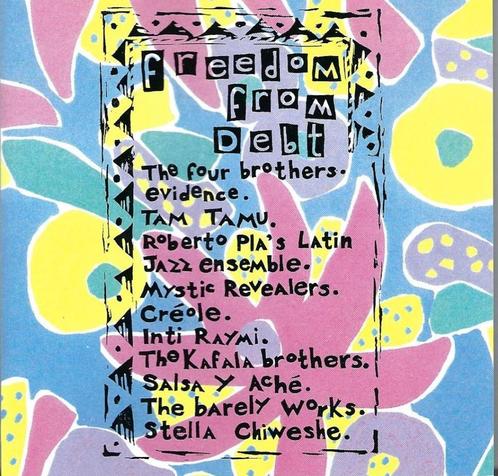 freedom
from
Debt
The four brothers.
evidence.
TAM TAMU.
Roberto Pla's Latin
Jazz ensemble.
Mystic Revealers.
Créole.
Inti Raymi.
The Kafala brothers.
Salsa Y Aché.
The barely works.
Stella Chiweshe.